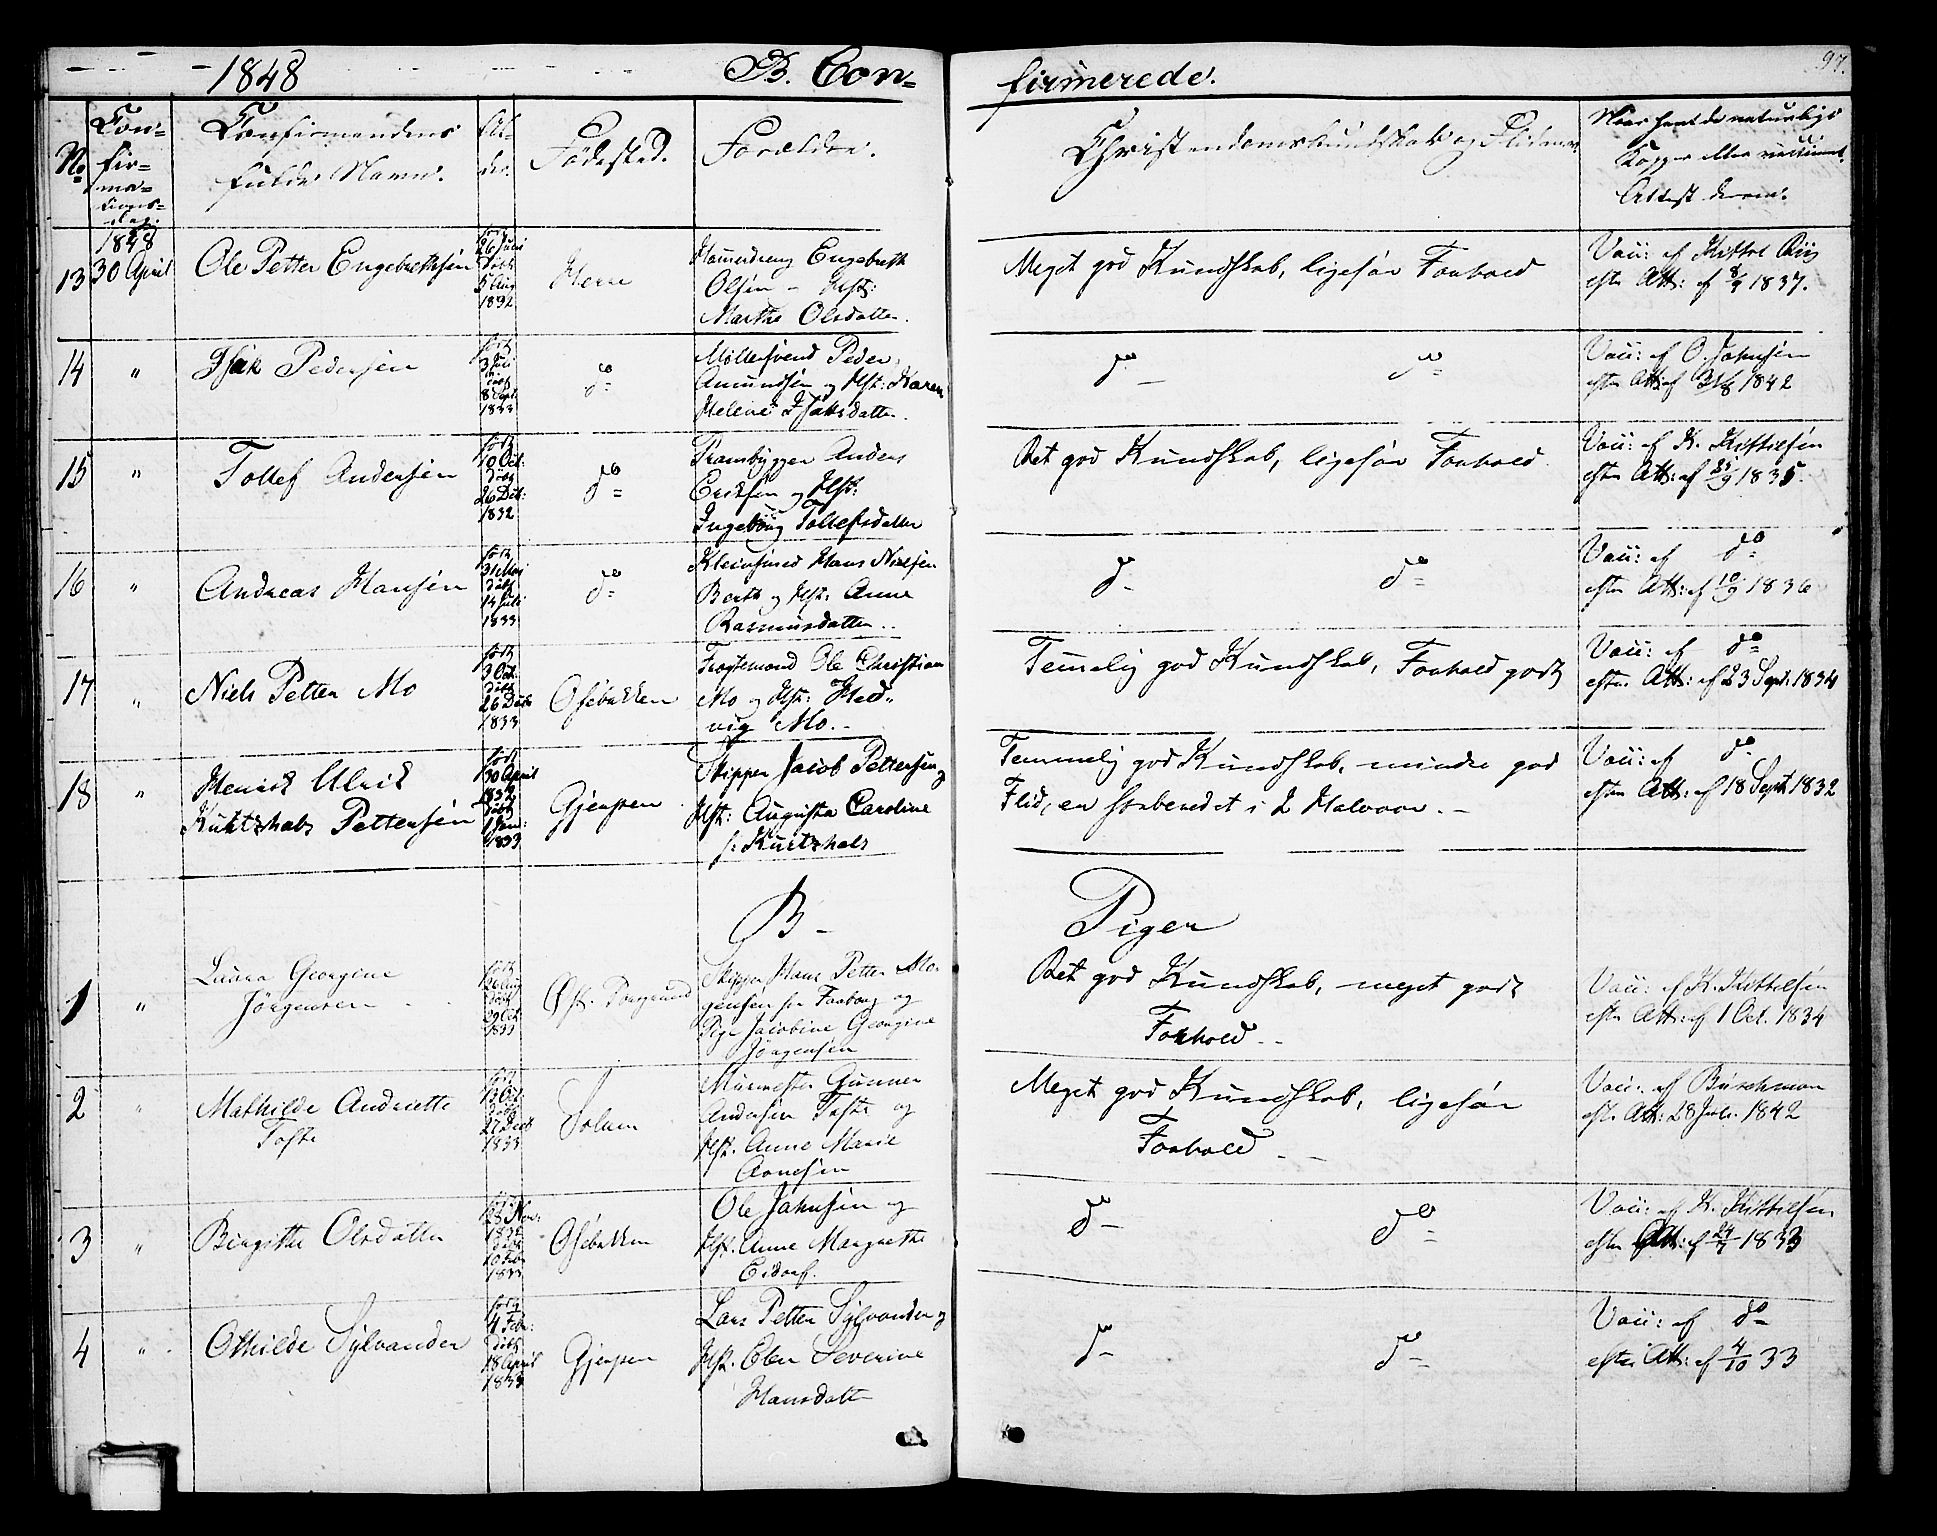 1848 B. Con= firmerede. 97.
No
Con=
fir=
ma=
tions=
dag.
Confirmandens
fulde Navn.
Al-
der.
Fødested.
Forældre.
Christendomskundskab og Flid
Naar havt de naturlige
Kopper eller vaccineret
Attest derom.
1848
13 30 April
Ole Petter Engebrethsen
26 Juli
døbt
5 Aug
1832
Herre
Engebreth
Olsen - Hst:
Marthe Olsdatter.
Meget god Kundskab, ligesaa Forhold
Vacc: af Kittel Riis
efter Att: af 8/9 1837.
14 "
Isak Pedersen
født
3 Juli
døbt
8 Sept
1833
do
Møllersvend Peder
Amundsen og Hst: Karen
Helene Isaksdatter.
do do
Vacc: af O. Johnsen
efter Att: af 31/8 1842
15 "
Tollef Andersen
født
10 Oct:
døbt
26 Dec:
1832
do
Prambygger Anders
Eriksen og Hst:
Ingeborg Tollefsdatter
Ret god Kundskab, ligesaa Forhold.
Vacc: af K. Kittilsen
efter Att: af 25/9 1835.
16 "
Andreas Hansen
født
31 Mai
døbt
14 Juli
1833
do
Kleinsmed Hans Nielsen
Berth og Hst: Anne
Rasmusdatter.
do do
Vacc: af do
efter Att: af 10/9 1836
17 "
Niels Petter Mo
født
3 Oct:
døbt
26 Decb
1833
Osebakken
Fragtemand Ole Christian
Mo og Hst: Hed=
vig Mo.
Temmelig god Kundskab, Forhold godt
Vacc: af do
efter Att: af 23 Sept: 1834
18 "
Henrik Ulrik
Kurtzhals Pettersen
født
30 April
1832
døbt
1 Jan:
1833
Gjerpen
Skipper Jacob Pettersen og
Hst: Augusta Caroline
f: Kurtzhals
Temmelig god Kundskab, mindre god
Flid, er forberedet i 2 Halvaar.
Vacc: af do
efter Att: af 18 Sept 1832
B - Piger
1 "
Laura Georgine
Jørgensen
født
26 Aug
døbt
29 Oct
1833
Øst. Porsgrund
Skipper Hans Petter Mo-
gensen fra Faaborg og
Pige Jacobine Georgine
Jørgensen
Ret god Kundskab, meget godt
Forhold.
Vacc: af K. Kittilsen
efter Att: af 1 Oct. 1834
2 "
Mathilde Andriette
Tofte
født
13 Oct:
døbt
27 Decb
1833
Solum
Muurmester Gunner
Andersen Tofte og
Hst. Anne Marie
Arnesen
Meget god Kundskab, ligesaa
Forhold
Vacc: af Buschman
efter Att: 28 Juli. 1842
3 "
Birgitte Olsdatter
født
28 Nov:
1832
døbt
10 Febr
1833
Osebakken
Ole Johnsen og
Hst. Anne Margrethe
Eidorf.
do do
Vacc: af K. Kittilsen
efter Att: af 24/7 1833
4 "
Othilde Sylvander
født
4 Febr:
døbt
18 April
1833
Gjerpen
Lars Petter Sylvander og
Hst. Elen Severine
Hansdatter
do do
Vacc: af do
efter Att: af 4/10 33